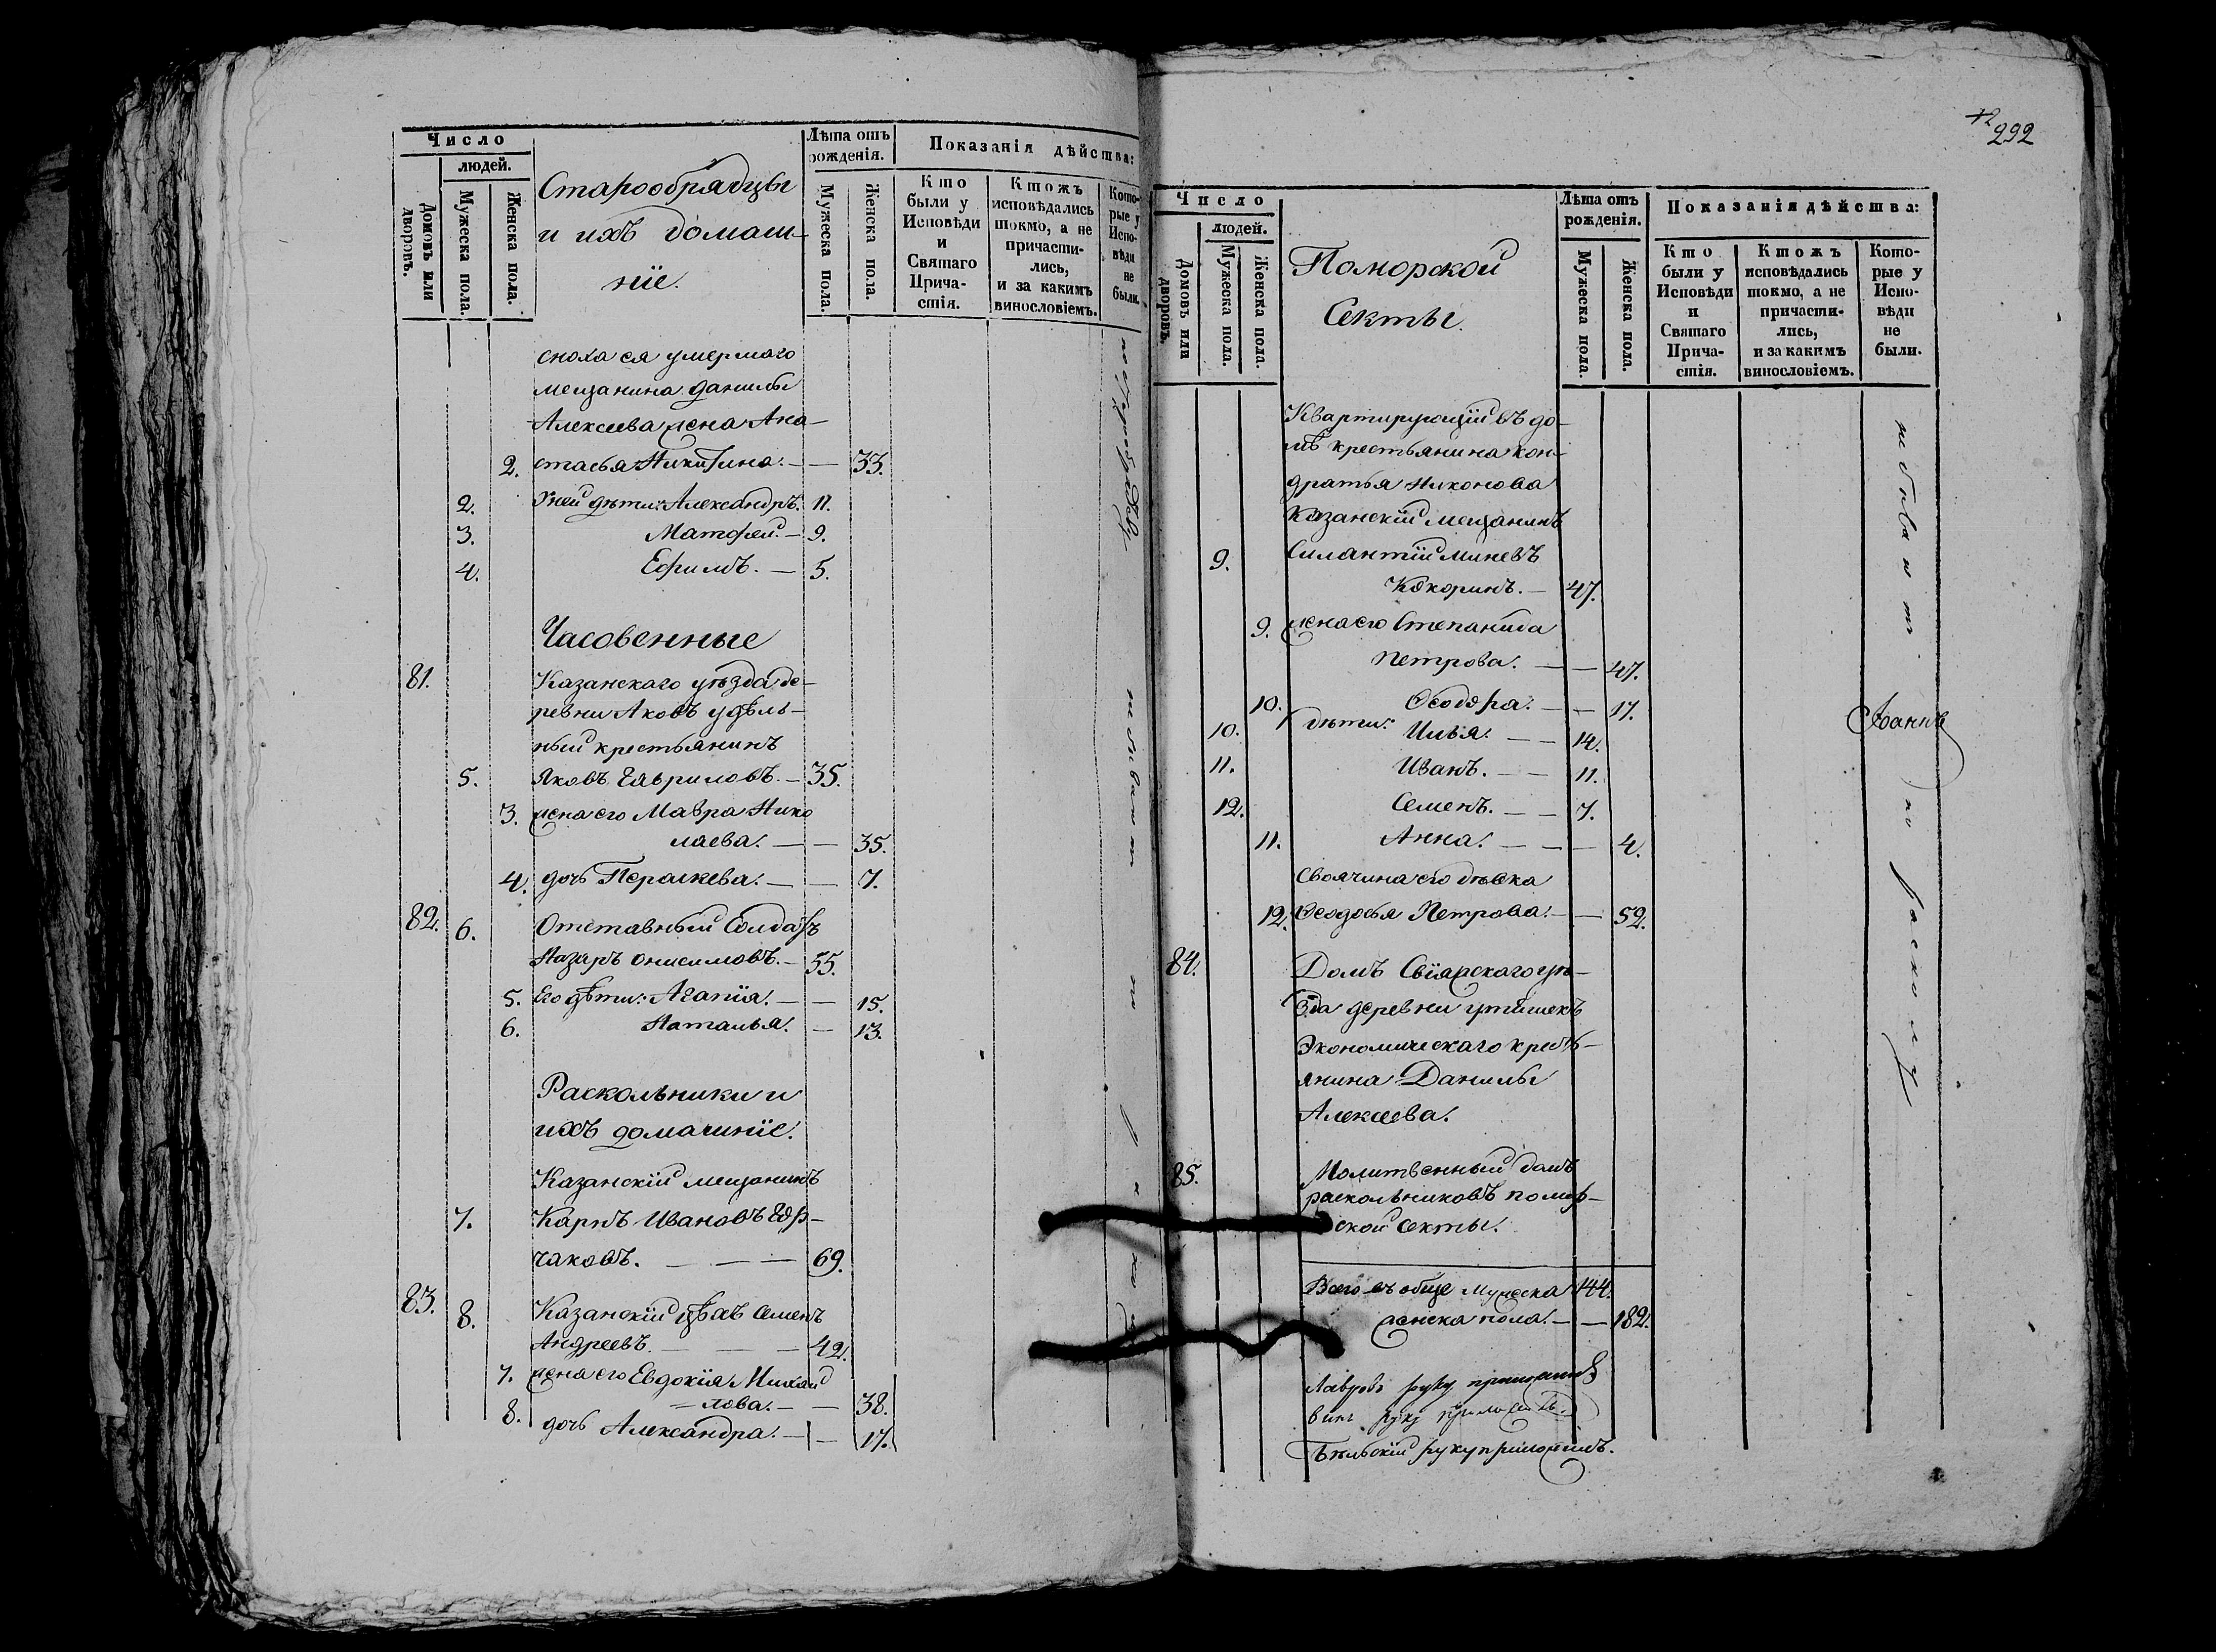 Число
людей.
Домовъ или дворовъ.
Мужеска пола.
Женска пола.
Старообрядцы
и ихъ домаш-
ніе.
Лѣта отъ рожденія.
Мужеска пола.
Женска пола.
Показанія дѣйства:
Кто были у Исповѣди и Святаго Причастія.
Ктожъ исповѣдались токмо, а не причастились, и за какимъ винословіемъ.
Которые у Исповѣди не были.
сноха ея умершаго
мещанина Данилы
Алексеева жена Ана-
2. стасья Никитина. — — 33.
2. У ней дѣти: Александръ. 11.
3. Матфей. — 9.
4. Ефимъ. — 5.
Часовенные
81. Казанскаго уѣзда де-
ревни Аковъ удѣль-
ный крестьянинъ
5. Яковъ Гавриловъ. — 35.
3. жена его Мавра Нико
лаева. — — 35.
4. дочь Пераскева. — — 7.
82. 6. Отставный Солдатъ
Назаръ Онисимовъ. — 55.
5. Его дѣти: Агапія. — — 15.
6. Наталья. — 13.
Раскольники и
ихъ домашніе.
Казанскій мещанинъ
7. Карпъ Ивановъ
чаковъ. — — — 69.
83. 8. Казанскій Семенъ
Андреевъ. — — — 42.
7. жена его Евдокія Михай
= лова. — — 38.
8. дочь Александра. — — 17.
292
Число
людей.
Домовъ или дворовъ.
Мужеска пола.
Женска пола.
Поморской
Секты.
Лѣта отъ рожденія.
Мужеска пола.
Женска пола.
Показанія дѣйства:
Кто были у Исповѣди и Святаго Причастія.
Ктожъ исповѣдались токмо, а не причастились, и за какимъ винословіемъ.
Которые у Исповѣди не были.
Квартирующій въ до-
мѣ крестьянина Кон-
дратья Никонова
Казанскій мещанинъ
9. Силантій Минеевъ
Кокоринъ. — 47.
9. жена его Степанида
Петрова. — — 47.
10. Ѳеодора. — — 17.
10. дѣти: Илья. — — 14.
11. Иванъ. — — 11.
12. Семенъ. — — 7.
11. Анна. — — — 4.
Своячина его дѣвка
12. Ѳеодосья Петрова. — — 52.
84. Домъ Свіяжскаго уѣ-
зда деревни
Экономическаго кресть-
янина Данилы
Алексеева.
85. Молитвенный домъ
раскольниковъ помор-
ской секты.
Всего въобще Мужеска 144.
женска пола. — — 182.
руку приложилъ
руку приложилъ.
Бѣльскій руку приложилъ.
не бываютъ по расколу
Іоаннъ